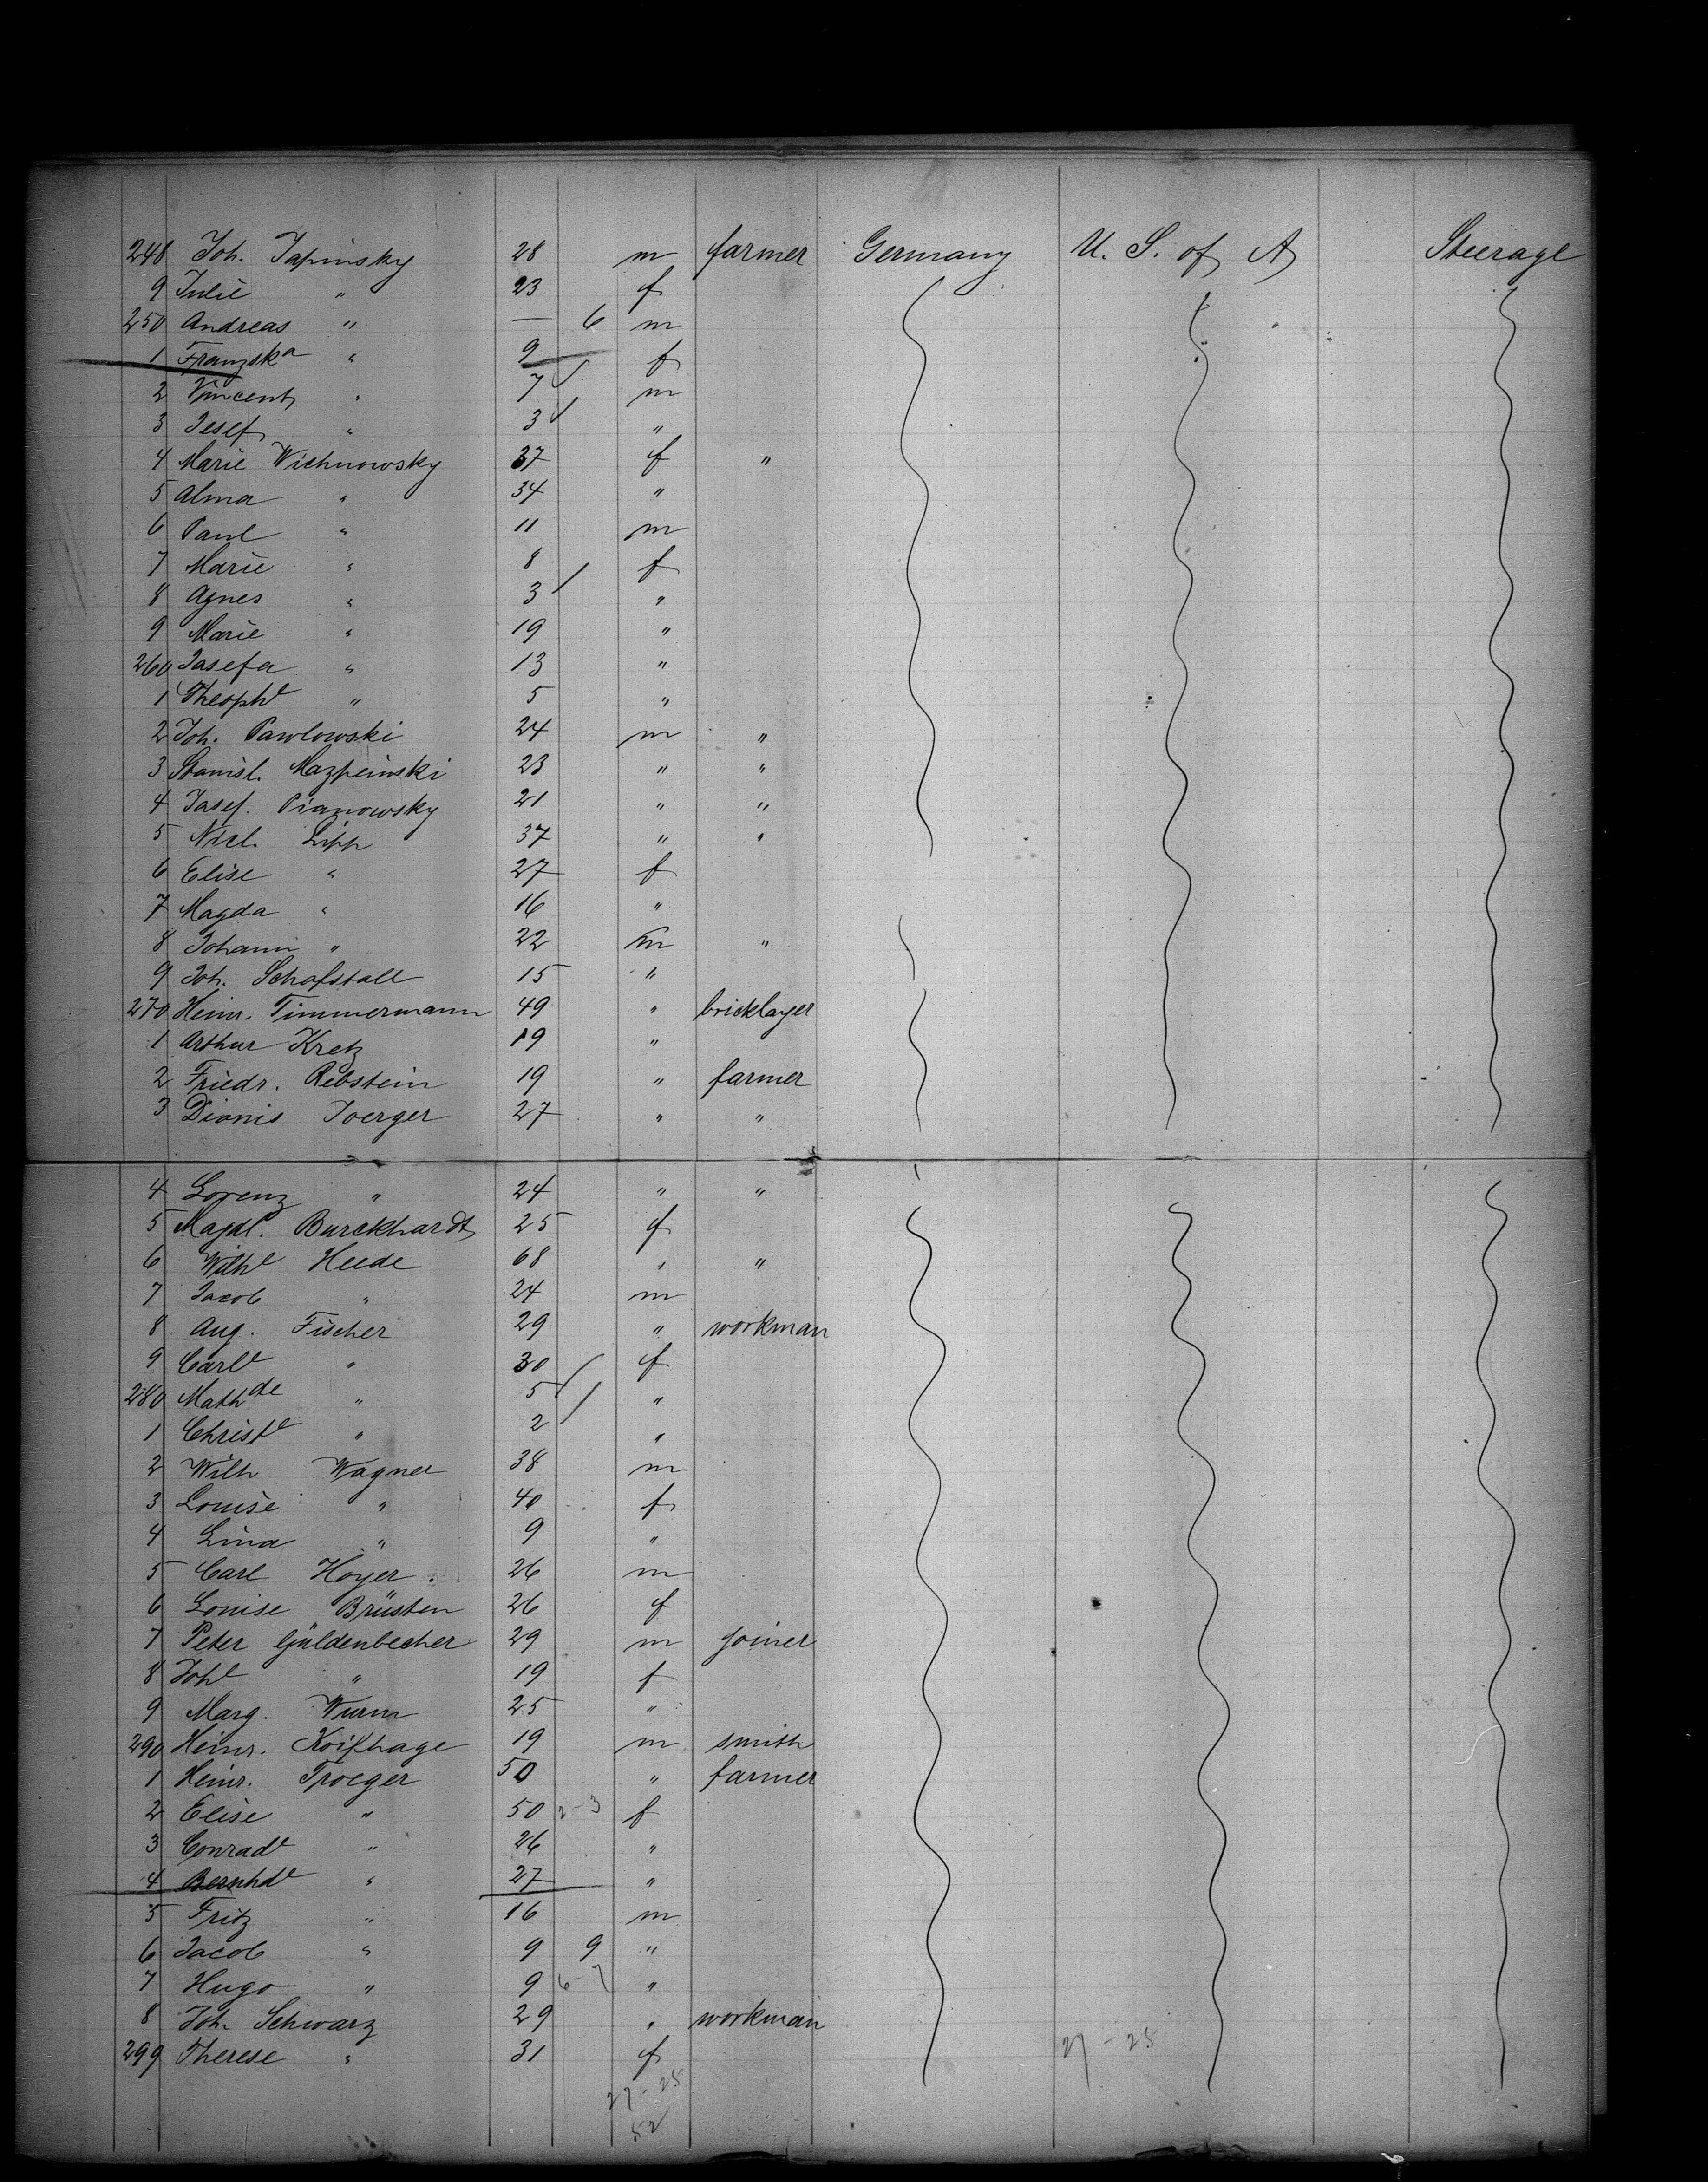 248 Joh. Tapinsky 28 m farmer Germany U. S. of A Steerage
9 Julie " 23 f
250 Andreas " — 6 m
1 Franzska " 9 f
2 Vincent " 7 m
3 Josef " 3 "
4 Marie Wichnowsky 37 f "
5 Alma " 34 "
6 Paul " 11 m
7 Marie " 8 f
8 Agnes " 3 "
9 Marie " 19 "
260 Josefa " 13 "
1 Theophe " 5 "
2 Joh. Pawlowski 24 m "
3 Stanisl. Mazpeinski 23 " "
4 Josef. Pianowsky 21 " "
5 Nicl. Lipp 37 " "
6 Elise " 27 f
7 Magda " 16 "
8 Johann " 22 m "
9 Joh. Schafstall 15 "
270 Heinr. Timmermann 49 " bricklayer
1 Arthur Kretz 19 "
2 Friedr. Rebstein 19 " farmer
3 Dionis Joerger 27 " "
4 Lorenz " 24 " "
5 Magdl. Burckhardt 25 f
6 Wilhe Heede 68 " "
7 Jacob " 24 m
8 Aug. Fischer 29 " workman
9 Carle " 30 f
280 Mathde " 5 "
1 Christe " 2 "
2 Wilh Wagner 38 m
3 Louise " 40 f
4 Lina " 9 "
5 Carl Hoyer. 26 m
6 Louise Brüsten 26 f
7 Peter Güldenbecher 29 m joiner
8 Johe " 19 f
9 Marg. Wurm 25 "
290 Heinr. Koifhage 19 m smith
1 Heinr. Troeger 50 " farmer
2 Elise " 50 2-3 f
3 Conrade " 26 "
4 Bernhde " 27 "
5 Fritz " 16 m
6 Jacob " 9 9 "
7 Hugo " 9 6-7 "
8 Joh. Schwarz 29 " workman
299 Therese " 31 f 27 - 25
27 - 25
52